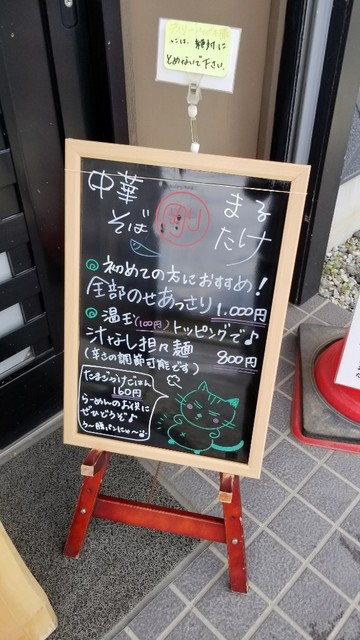 には、絶対に
とめないで下さい。
中華 まる
そば たけ
◎初めての方におすすめ!
全部のせあっさり 1,000円
◎温玉(100円)トッピングで♪
汁なし担々麺 800円
(辛さの調節可能です)
たまごかけごはん
160円
らーめんのお供に
ぜひどうぞ♪